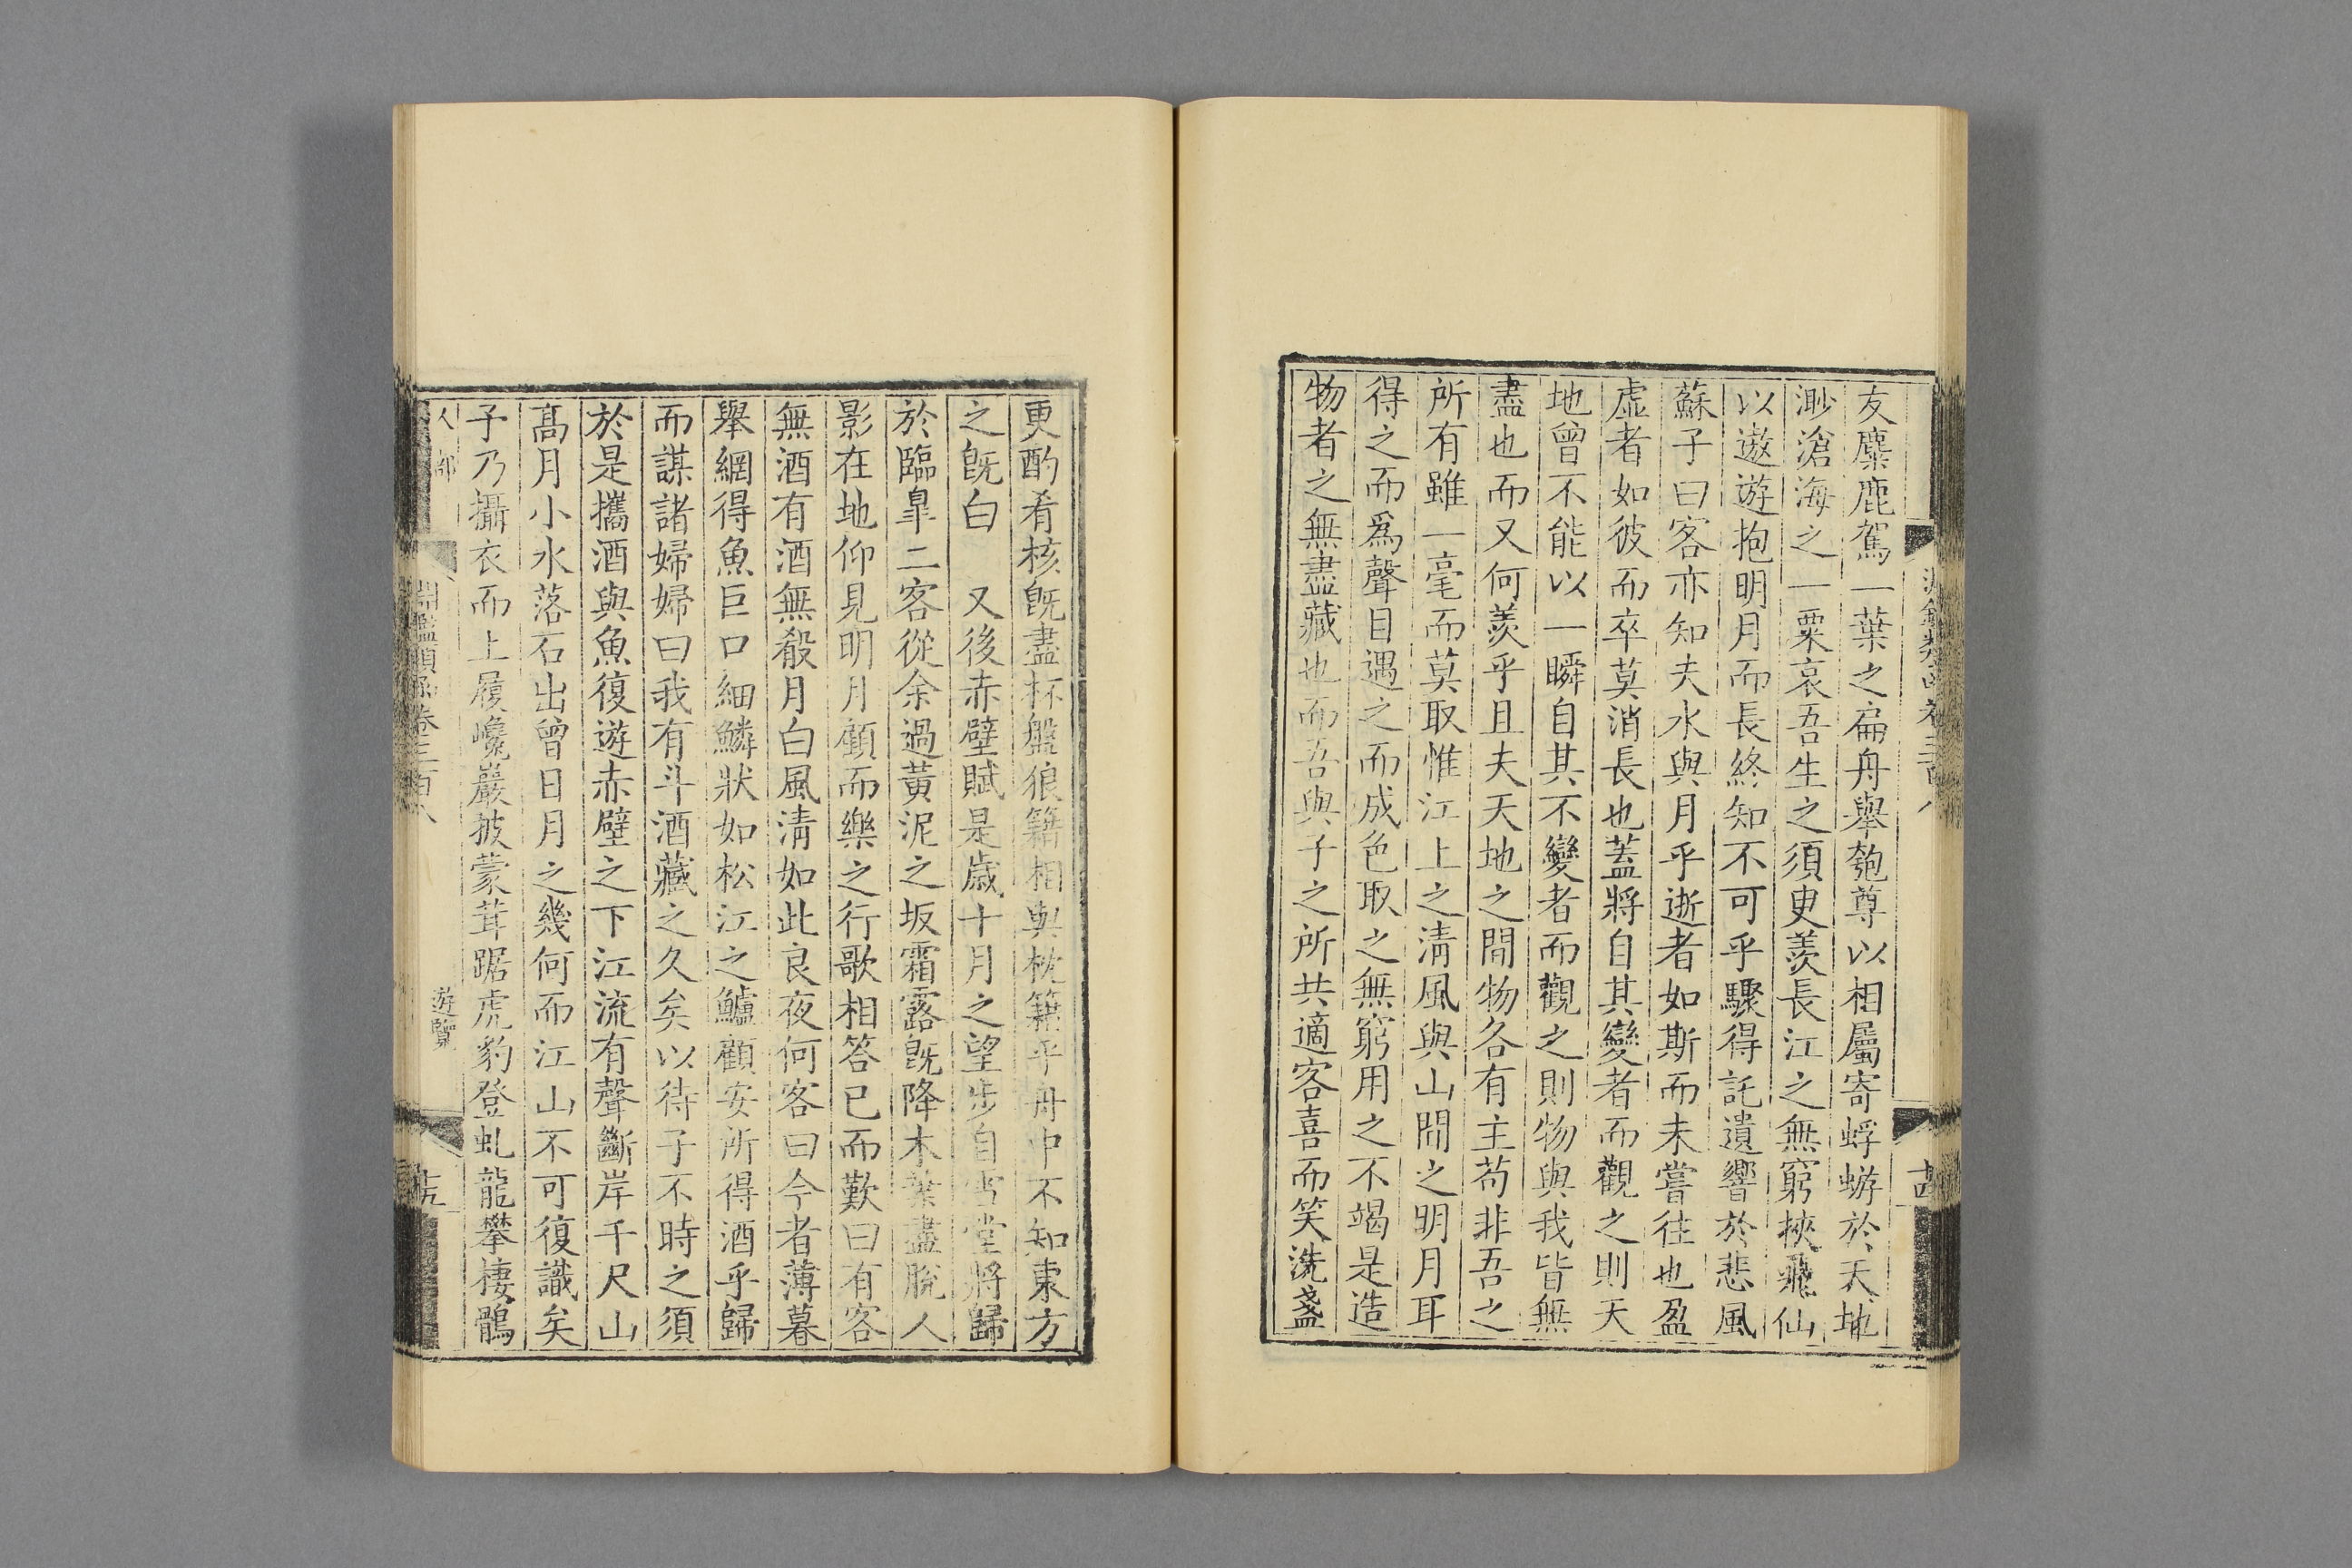 友麋鹿駕一葉之扁舟舉匏尊以相屬寄蜉蝣於天地
渺滄海之一粟哀吾生之須臾羨長江之無窮挾飛仙
以遨遊抱明月而長終知不可乎驟得託遺響於悲風
蘇子曰客亦知夫水與月乎逝者如斯而未嘗往也盈
虛者如彼而卒莫消長也蓋將自其變者而觀之則天
地曾不能以一瞬自其不變者而觀之則物與我皆無
盡也而又何羨乎且夫天地之間物各有主苟非吾之
所有雖一毫而莫取惟江上之清風與山間之明月耳
得之而爲聲目遇之而成色取之無窮用之不竭是造
物者之無盡藏也而吾與子之所共適客喜而笑洗盞
更酌肴核旣盡杯盤狼籍相與枕籍乎舟中不知東方
之旣白　又後赤壁賦是歲十月之望步自雪堂將歸
於臨皐二客從余過黃泥之坂霜露旣降木葉盡脫人
影在地仰見明月顧而樂之行歌相答已而歎曰有客
無酒有酒無殽月白風清如此良夜何客曰今者薄暮
舉網得魚巨口細鱗狀如松江之鱸顧安所得酒乎歸
而謀諸婦婦曰我有斗酒藏之久矣以待子不時之須
於是攜酒與魚復遊赤壁之下江流有聲斷岸千尺山
高月小水落石出曾日月之幾何而江山不可復識矣
子乃攝衣而上履巉巖披蒙茸踞虎豹登虬龍攀棲鶻
人部
淵鑑類函卷三百八
遊覽
十五